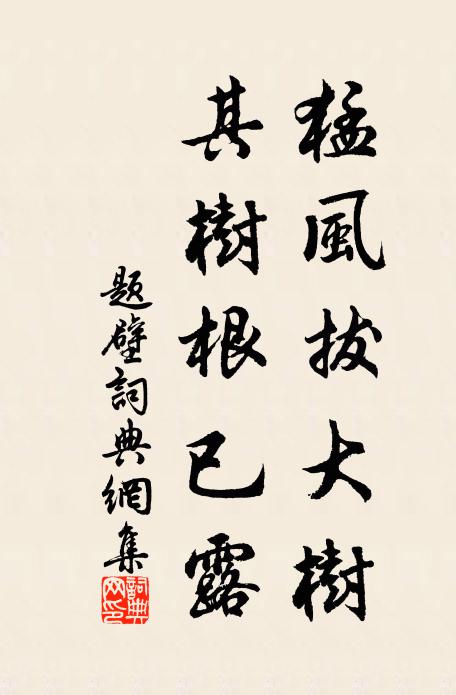 猛風拔大樹
其樹根已露
題壁詞典網集
詞典
网印